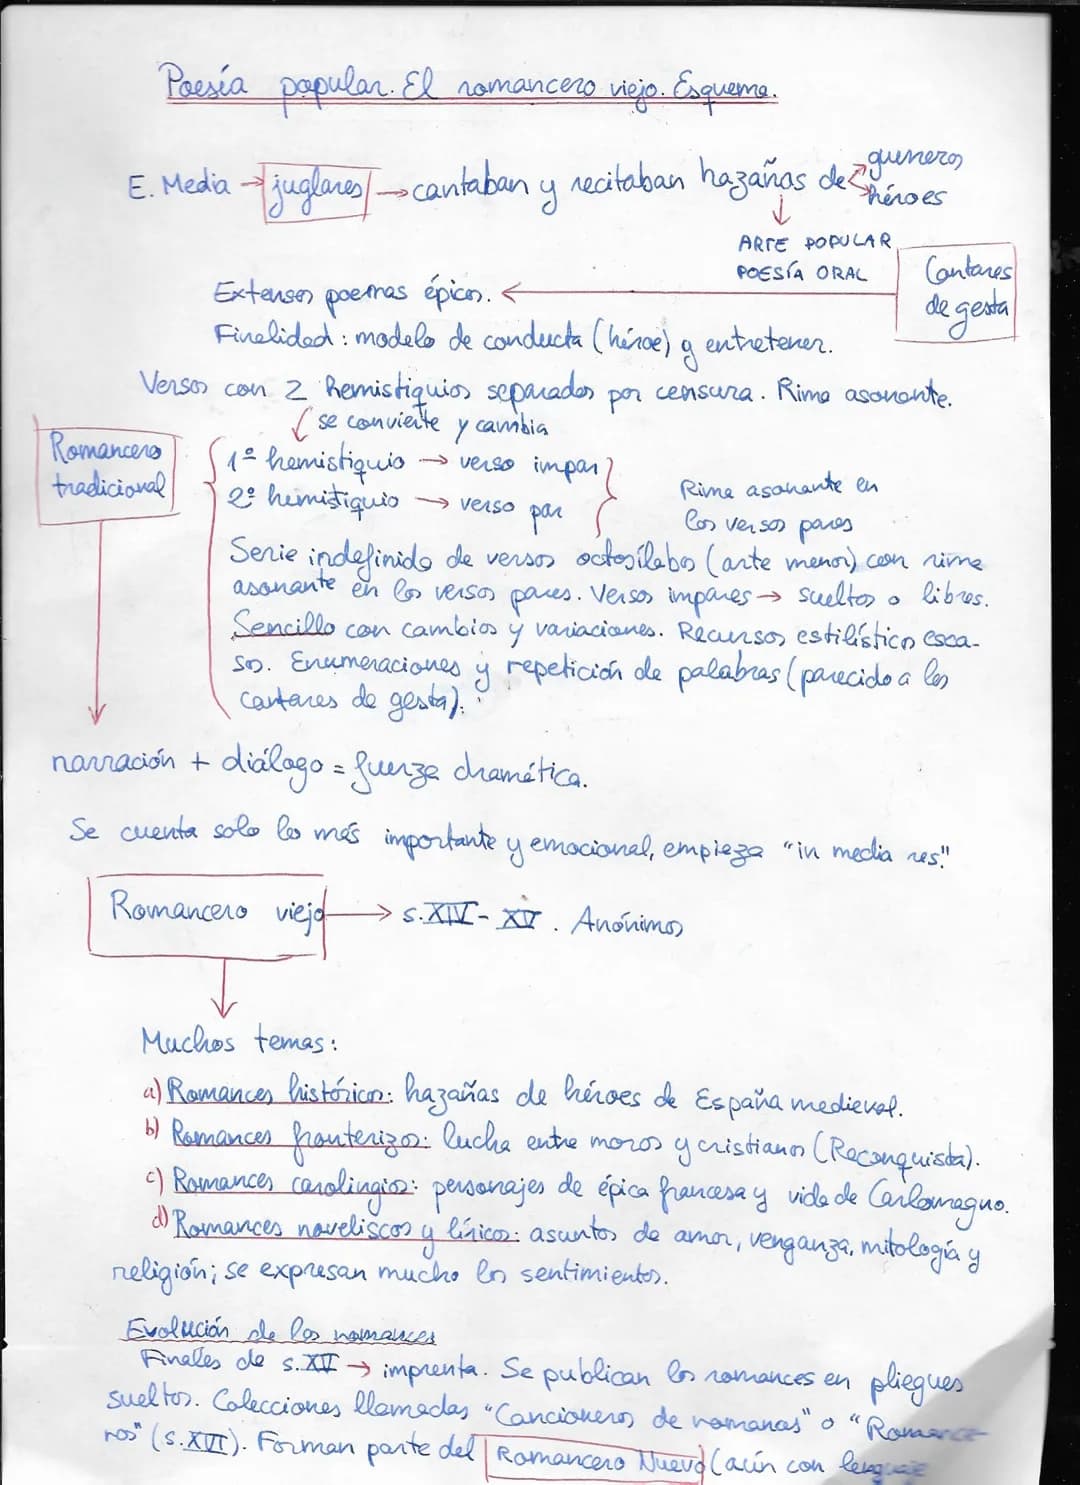 Poesía popular. El romancero viejo. Esquema.
E. Media → juglares → cantaban y recitaban hazañas de guerreros
héroes
ARTE POPULAR
POESÍA ORAL
Cantares
de gesta
Extensos poemas épicos.
Finalidad: modelo de conducta (héroe) y entretener.
Versos con 2 hemistiquios separados por censura. Rima asonante.
se convierte y cambia
Romancero
tradicional
1º hemistiquio → verso impar
2º hemistiquio → verso par
Rima asonante en
los versos pares
Serie indefinida de versos octosílabos (arte menor) con rima
asonante en los versos pares. Versos impares → sueltos o libres.
Sencillo con cambios y variaciones. Recursos estilísticos esca-
sos. Enumeraciones y repetición de palabras (parecido a los
cantares de gesta).
narración + diálogo = fuerza dramática.
Se cuenta solo lo más importante y emocional, empieza "in media res."
Romancero viejo → s. XIV - XV. Anónimos
Muchos temas:
a) Romances históricos: hazañas de héroes de España medieval.
b) Romances fronterizos: lucha entre moros y cristianos (Reconquista).
c) Romances carolingios: personajes de épica francesa y vida de Carlomagno.
d) Romances noveliscos y líricos: asuntos de amor, venganza, mitología y
religión; se expresan mucho los sentimientos.
Evolución de los romances
Finales de s. XV → imprenta. Se publican los romances en pliegues
sueltos. Colecciones llamadas "Cancioneros de romanas" o "Romance-
ros" (s. XVI). Forman parte del Romancero Nuevo (aún con lenguaje